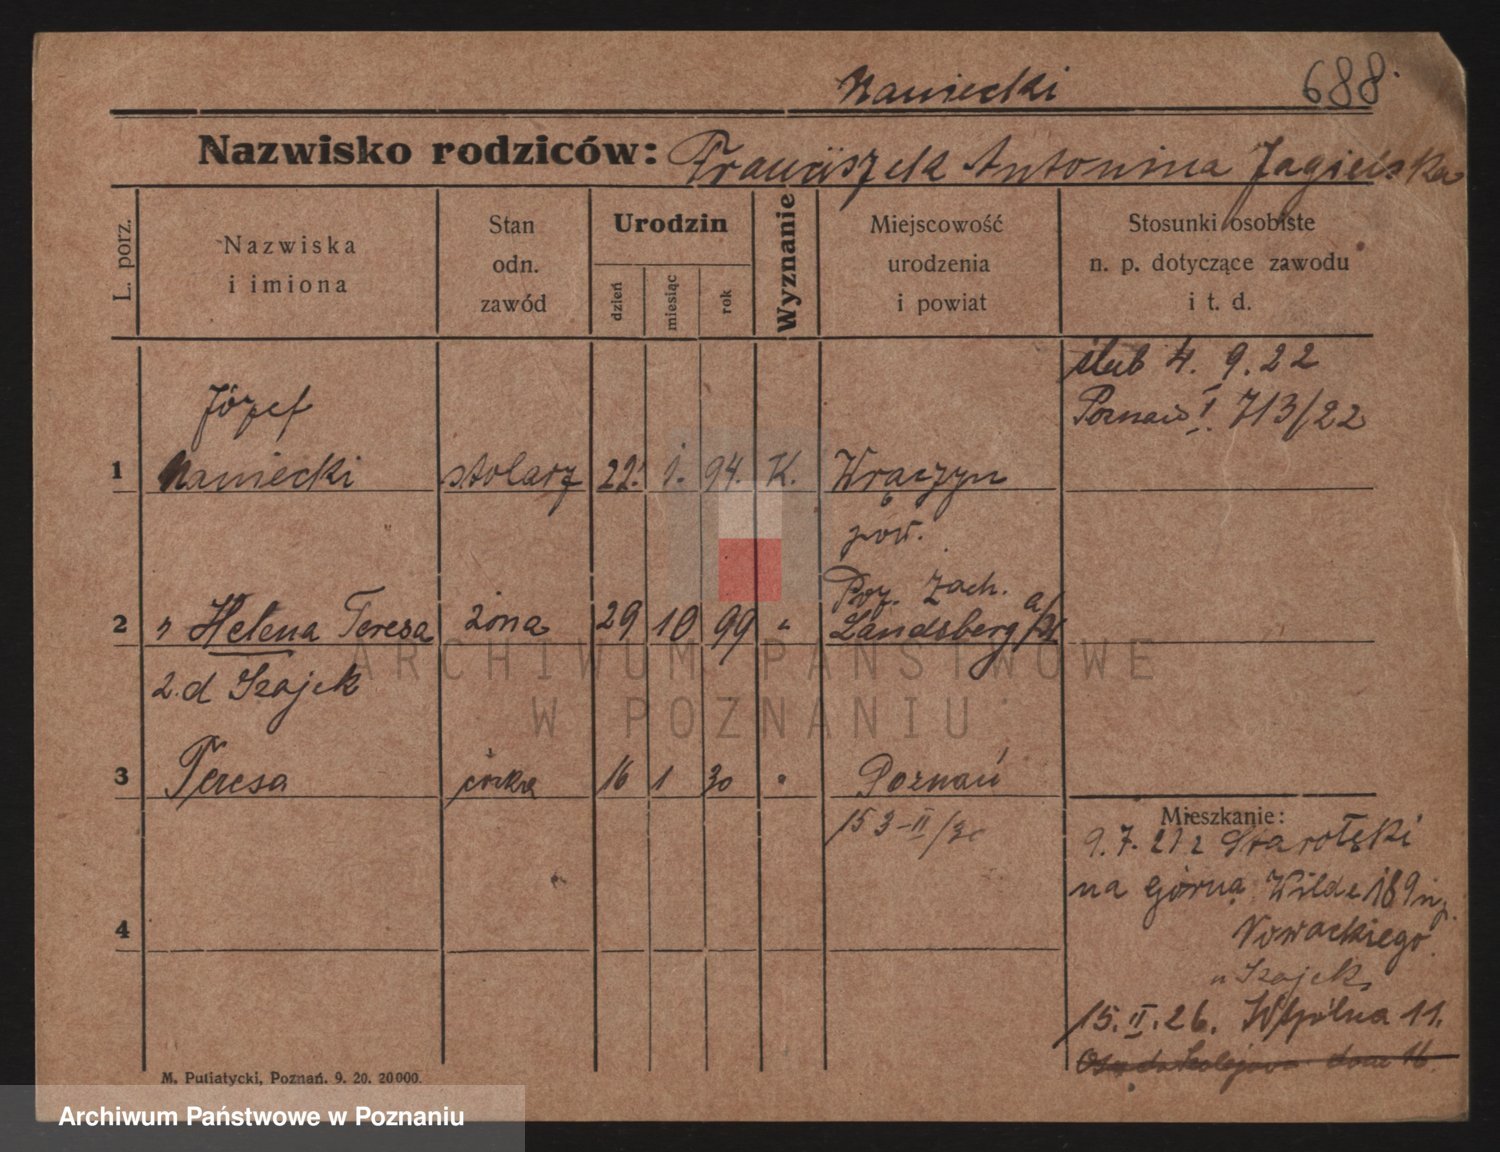 Naniecki 688.
Nazwisko rodziców: Franciszek Antonina Jagielska
L. porz.
Nazwiska
i imiona
Stan
odn.
zawód
Urodzin
dzień
miesiąc
rok
Wyznanie
Miejscowość
urodzenia
i powiat
Stosunki osobiste
n. p. dotyczące zawodu
i t. d.
ślub 4. 9. 22
Poznań I. 713/22
Józef
1 Naniecki stolarz 22. 1. 94. K. Wrączyn
pow.
Poz. Zach.
2 " Helena Teresa żona 29 10 99 " Landsberg a/W
z d Szajek
3 Teresa córka 16 1 30 " Poznań
153-II/30
Mieszkanie:
9. 7. 21 z Starołęki
na Górną Wildę 189 u p.
Nowackiego.
u Szajek
15. II. 26. Wspólna 11.
dom 16.
4
M. Putiatycki, Poznań. 9. 20. 20000.
ARCHIWUM PAŃSTWOWE
W POZNANIU
Archiwum Państwowe w Poznaniu